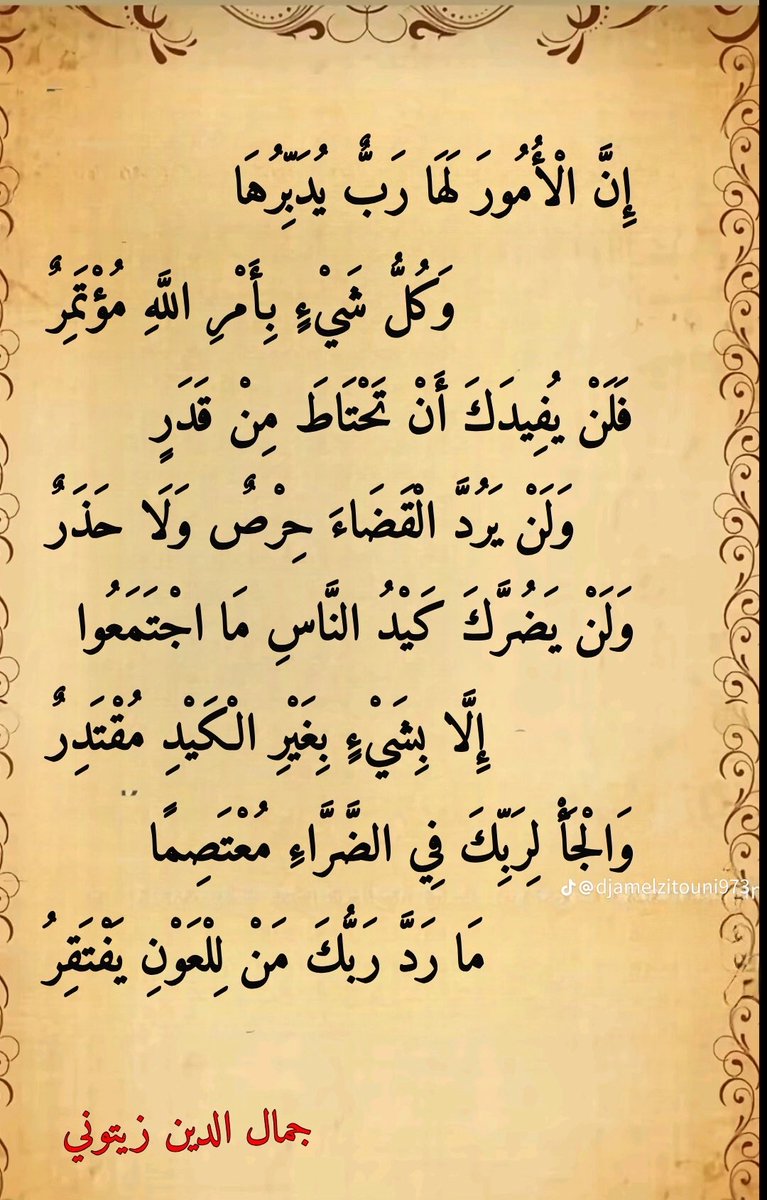 إِنَّ الْأُمُورَ لَهَا رَبٌّ يُدَبِّرُهَا
وَكُلُّ شَيْءٍ بِأَمْرِ اللَّهِ مُؤْتَمِرٌ
فَلَنْ يُفِيدَكَ أَنْ تَحْتَاطَ مِنْ قَدَرٍ
وَلَنْ يَرُدَّ الْقَضَاءَ حِرْصٌ وَلَا حَذَرٌ
وَلَنْ يَضُرَّكَ كَيْدُ النَّاسِ مَا اجْتَمَعُوا
إِلَّا بِشَيْءٍ بِغَيْرِ الْكَيْدِ مُقْتَدِرٌ
وَالْجَأْ لِرَبِّكَ فِي الضَّرَّاءِ مُعْتَصِمًا
@djamelzitouni973
مَا رَدَّ رَبُّكَ مَنْ لِلْعَوْنِ يَفْتَقِرُ
جمال الدين زيتوني